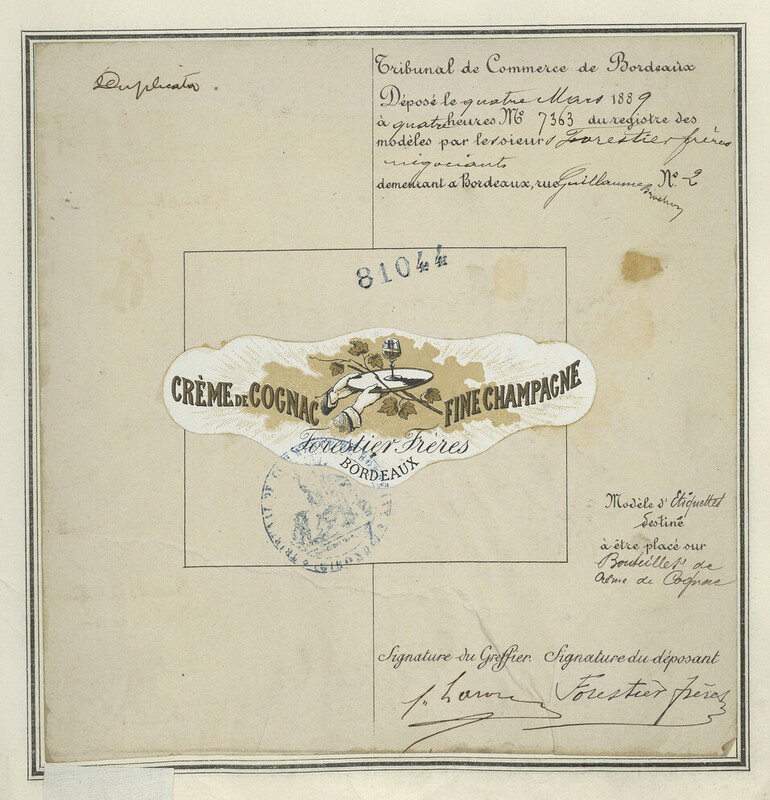 Duplicata.
Tribunal de Commerce de Bordeaux
Déposé le quatre Mars 1889
à quatre heures Nº 7363 du registre des
modèles par les sieurs Forestier frères
négociants
demeurant a Bordeaux, rue Guillaume Brochon Nº 2
81044
CRÈME DE COGNAC FINE CHAMPAGNE
Forestier Frères
BORDEAUX
Modèle d'Étiquettes
destiné
à être placé sur
Bouteilles de
Crème de Cognac
Signature du Greffier. Signature du déposant
Forestier frères